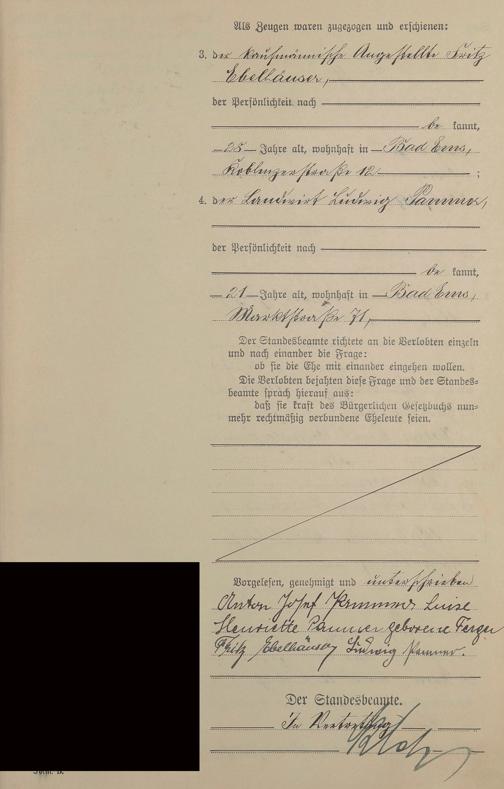 Als Zeugen waren zugezogen und erschienen:
3. der kaufmännische Angestellte Fritz
Ebelhäuser,
der Persönlichkeit nach
be kannt,
25 Jahre alt, wohnhaft in Bad Ems,
Koblenzerstraße 12 ;
4. der Landwirt Ludwig
der Persönlichkeit nach
be kannt,
21 Jahre alt, wohnhaft in Bad Ems,
Marktstraße 71,
Der Standesbeamte richtete an die Verlobten einzeln
und nach einander die Frage:
ob sie die Ehe mit einander eingehen wollen.
Die Verlobten bejahten diese Frage und der Standes-
beamte sprach hierauf aus:
daß sie kraft des Bürgerlichen Gesetzbuchs nun-
mehr rechtmäßig verbundene Eheleute seien.
Vorgelesen, genehmigt und unterschrieben
Anton Josef Luise
Henriette geborene
Fritz Ebelhäuser Ludwig
Der Standesbeamte.
In Vertretung